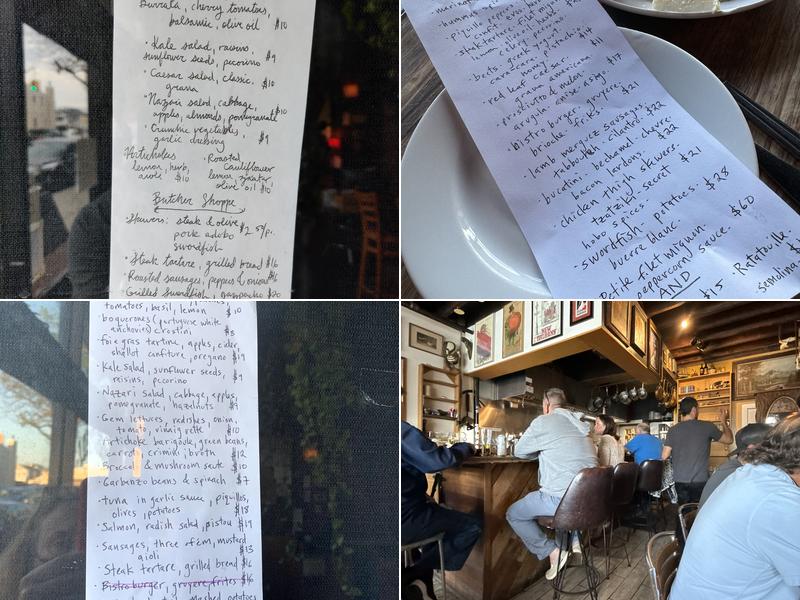 Burrata, cherry tomatoes,
balsamic, olive oil $10
· Kale salad, raisins,
sunflower seeds, pecorino $9
· Caesar salad, classic.
grana $10
· Nazari salad, cabbage,
apples, almonds, pomegranate $10
· Crunchie vegetables,
garlic dressing $9
Artichokes
lemon, herb,
aioli $10
· Roasted
Cauliflower
lemon, zaatar,
olive oil $10
Butcher Shoppe
· Skewers: steak & olive,
pork adobo $2.50/p.
swordfish
· Steak tartare, grilled bread $16
· Roasted sausages, peppers & onions $16
· Grilled Swordfish, gazpacho $20
· hummus
· piquillo peppers
· steak tartare. filet mignon.
· beets. greek yogurt.
honey. pistach. $14
· red leaf caesar.
grana americana $17
· prosciutto & melon.
arugula. asiago. $21
· bistro burger. gruyere.
brioche. frites. $21
· lamb merguez sausages.
tabbouleh. cilantro. $22
· bucatini. bechamel. chevre.
bacon lardons. $22
· chicken thigh skewers.
tzatziki. secret
hobo spices. $21
· swordfish. potatoes.
buerre blanc. $28
Petite filet mignon.
peppercorn sauce. $60
AND
$15
· Ratatouille.
· semolina
tomatoes, basil, lemon $10
· boquerones (portuguese white
anchovies) crostini $8
· foie gras tartine, apples, cider
shallot confiture, oregano $19
· Kale salad, sunflower seeds,
raisins, pecorino $9
· Nazari Salad, cabbage, apples,
pomegranate, hazelnuts $9
· Gem lettuces, radishes, onion,
tomato, vinaigrette $10
· Artichoke barigoule, green beans,
carrot, crimini, broth $12
· Broccoli & mushroom saute $10
· Garbenzo beans & spinach $7
· tuna in garlic sauce, piquillos,
olives, potatoes $18
· Salmon, radish salad, pistou $19
· Sausages, three of em, mustard
aioli $13
· Steak tartare, grilled bread $16
· Bistro burger, gruyere, frites $16
mashed potatoes